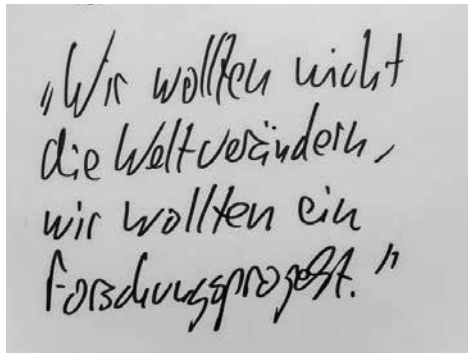 „Wir wollten nicht
die Welt verändern,
wir wollten ein
Forschungsprojekt."